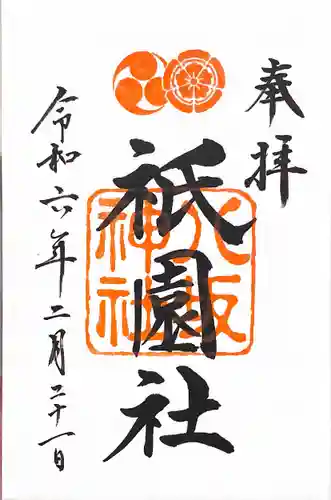 奉拝
祇園社
八坂神社
令和六年二月二十一日